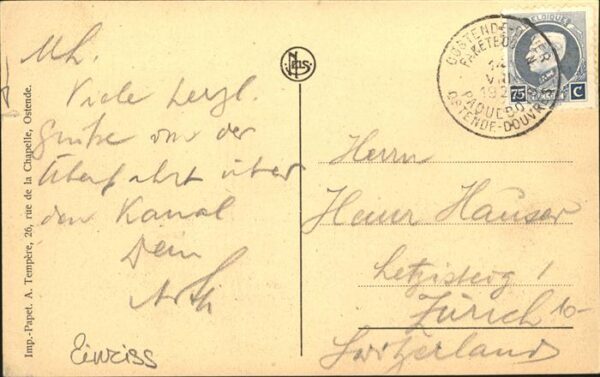 M. L.
Viele herzl.
Grüße von der
Überfahrt über
den Kanal
Dein
Einriss
Imp.-Papet. A. Tempère, 26, rue de la Chapelle, Ostende.
Nels
BELGIQUE
75 C
OOSTENDE-DOVER
PAKETBOOT
14
VII
192
PAQUEBOT
OSTENDE-DOUVRES
Herrn
Heinr Hauser
Letzisteig 1
Zürich 10-
Switzerland